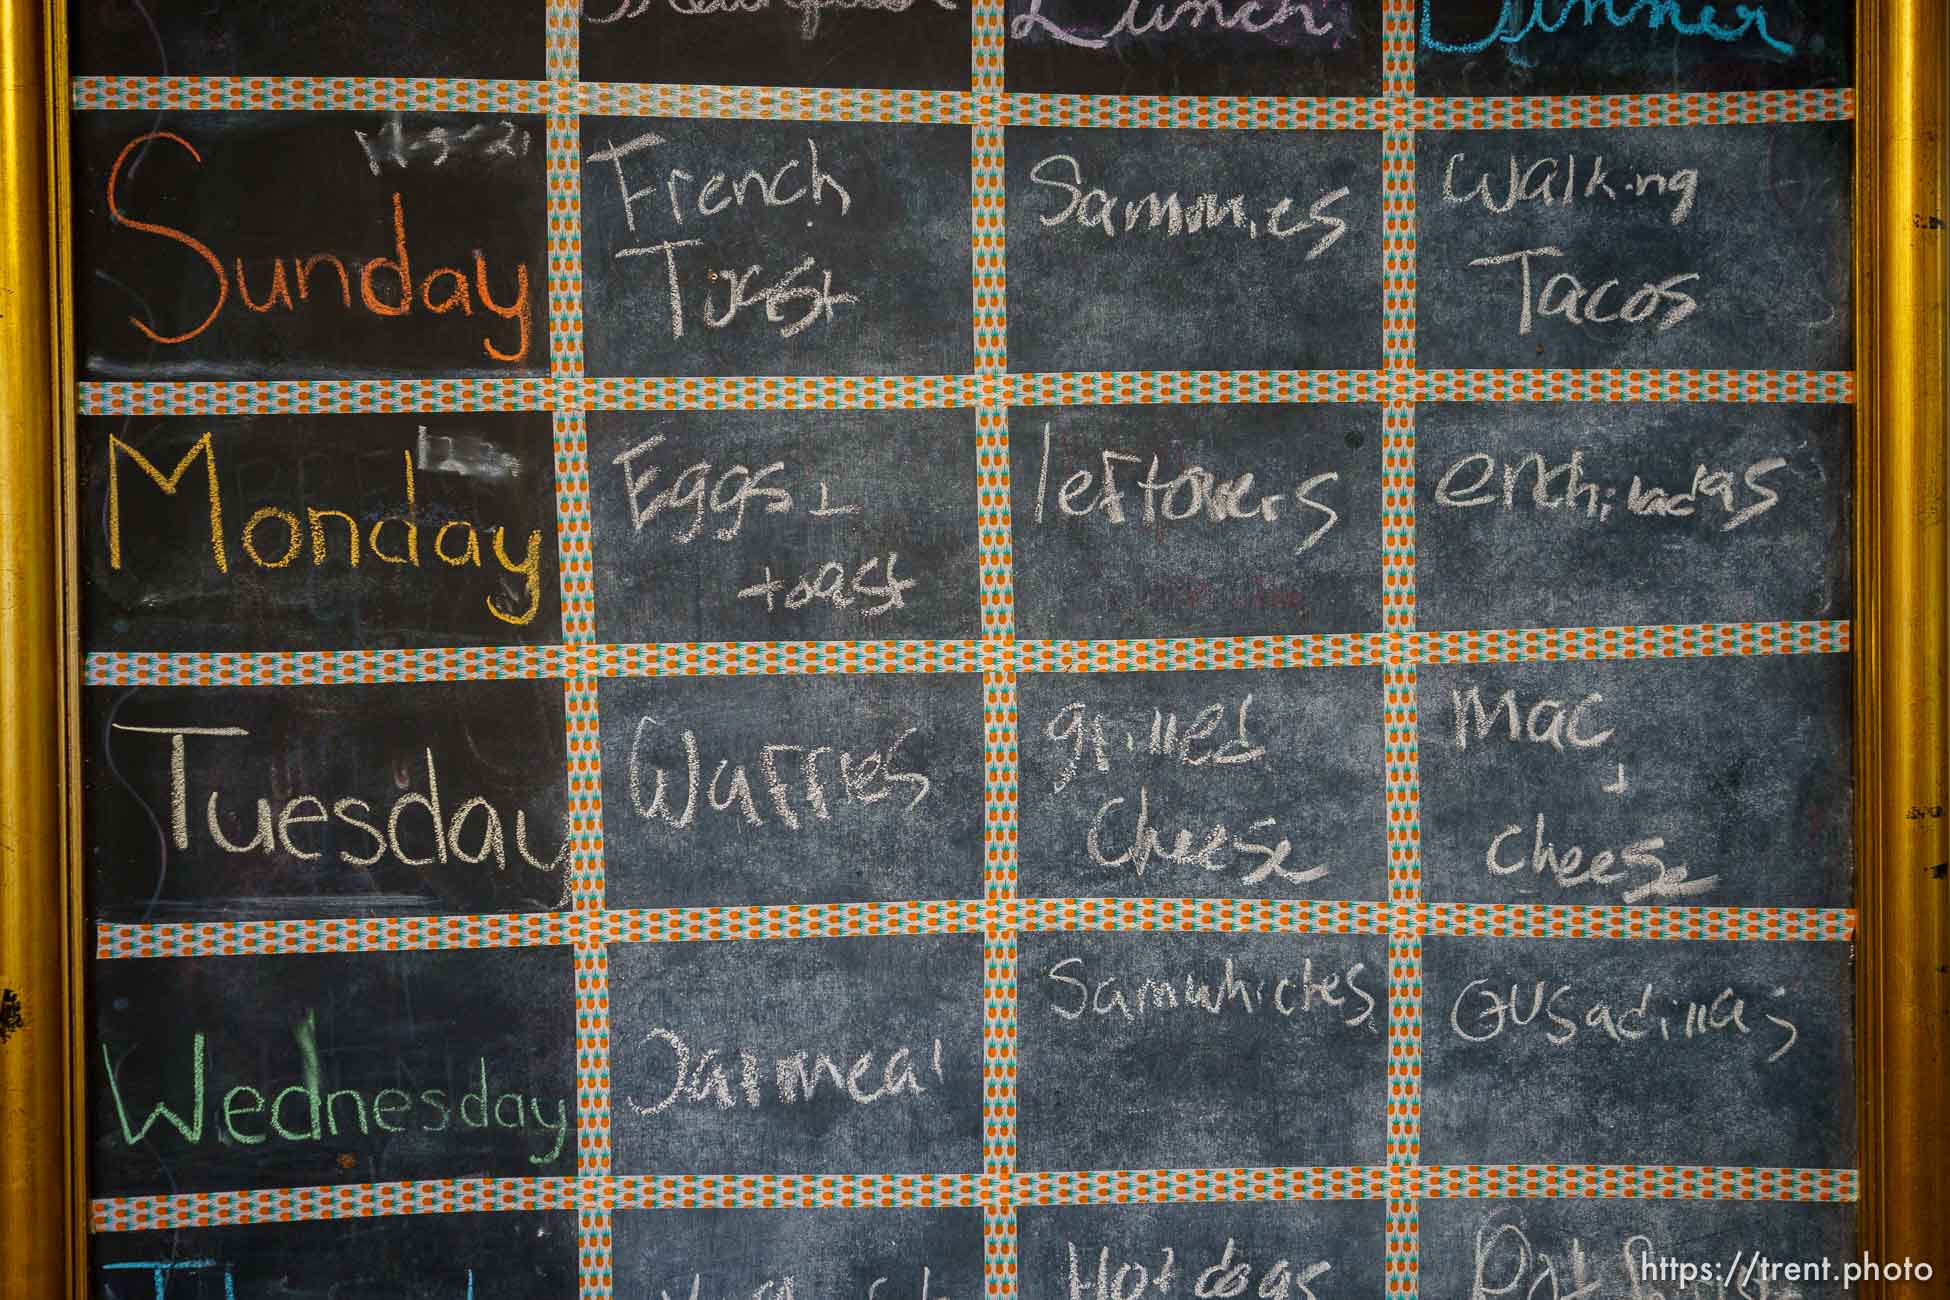 Breakfast Lunch Dinner
Sunday
French
Toast
Sammies
Walking
Tacos
Monday
Eggs +
toast
leftovers
enchiladas
Tuesday
Waffles
grilled
cheese
Mac
+
cheese
Wednesday
Oatmeal
Samwhiches
Qusadillas
Hot dogs
https://trent.photo